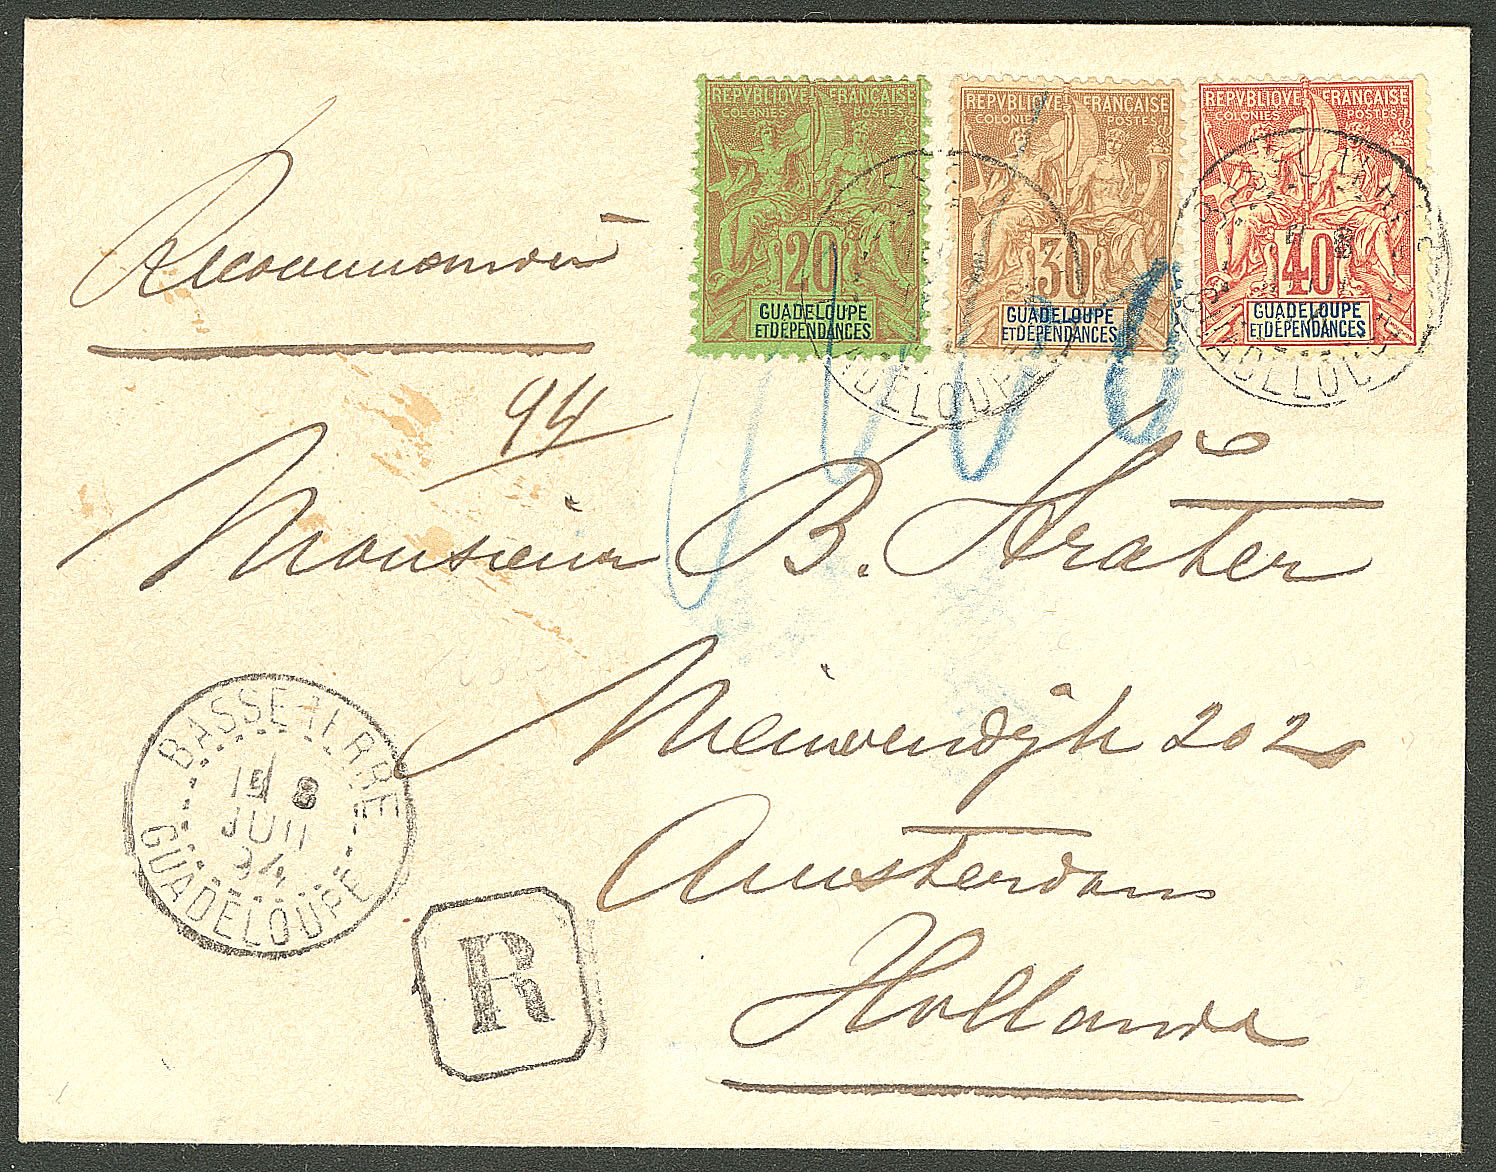 REPVBLIQVE FRANÇAISE
COLONIES POSTES
20
GUADELOUPE
ET DÉPENDANCES
REPVBLIQVE FRANÇAISE
COLONIES POSTES
30
GUADELOUPE
ET DÉPENDANCES
REPVBLIQVE FRANÇAISE
COLONIES POSTES
40
GUADELOUPE
ET DÉPENDANCES
GUADELOUPE
GUADELOUPE
Recommandée
94
Monsieur B. Sträter
Nieuwendijk 202
Amsterdam
Hollande
BASSE-TERRE
8
JUIL
94
GUADELOUPE
R